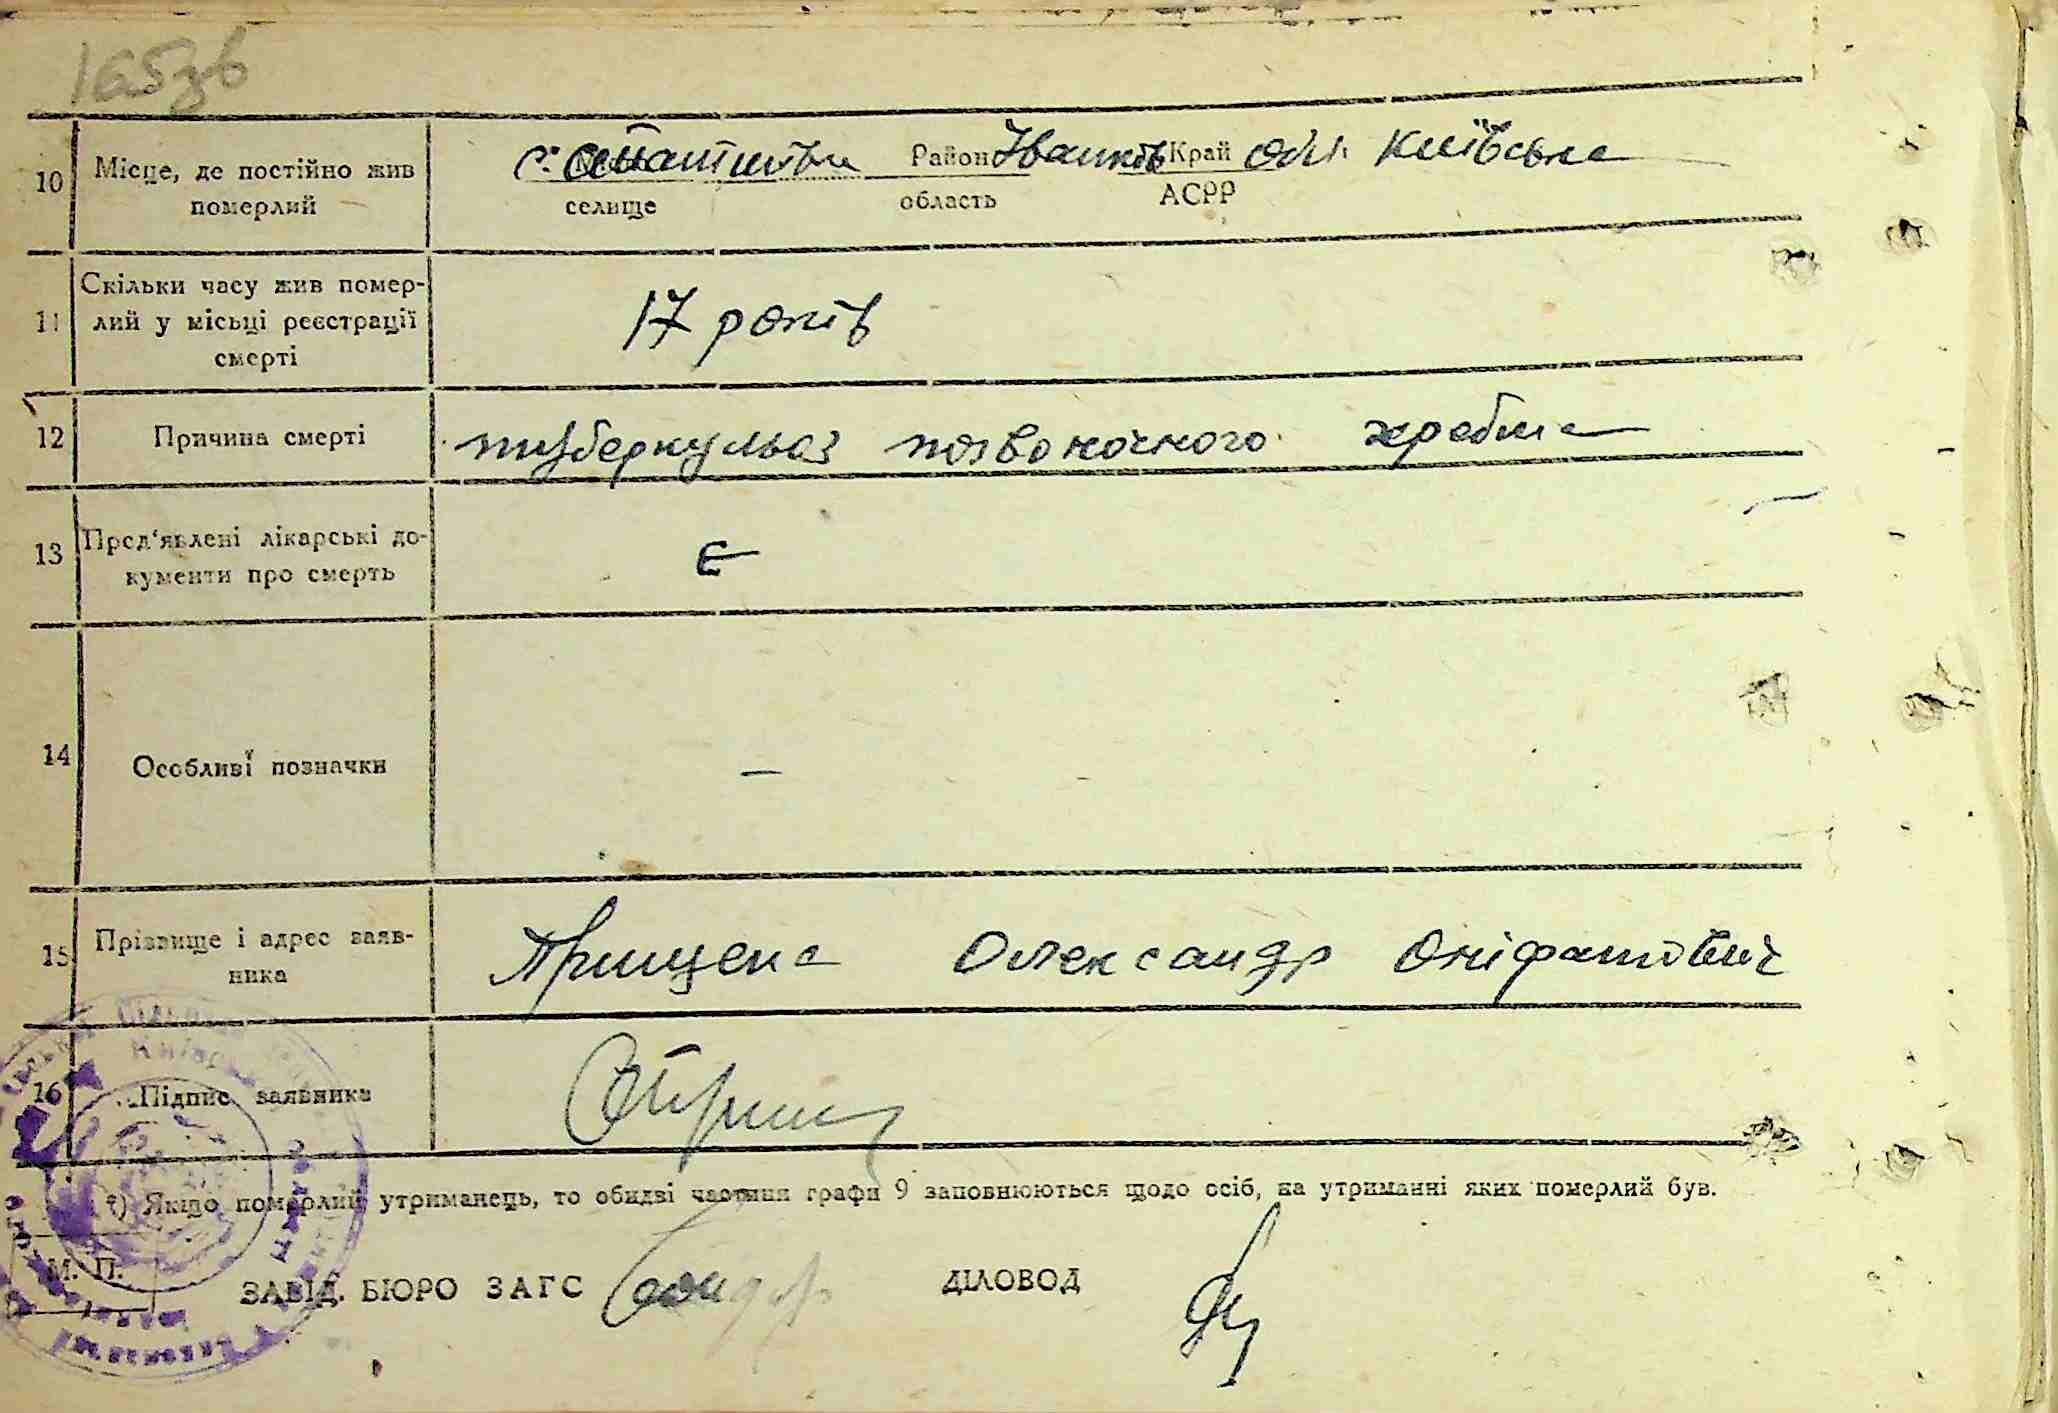 165зв
10 Місце, де постійно жив померлий
с. Район Іванків Край обл. Київська
селище область АСРР
11 Скільки часу жив померлий у місьці реєстрації смерті
17 років
12 Причина смерті
туберкульоз позвоночного хребта
13 Пред'явлені лікарські документи про смерть
є
14 Особливі позначки
—
15 Прізвище і адрес заявника
Прищепа Олександр Оніфатович
16 Підпис заявника
*) Якщо померлий утриманець, то обидві частини графи 9 заповнюються щодо осіб, на утриманні яких померлий був.
М. П.
ЗАВІД. БЮРО ЗАГС ДІЛОВОД